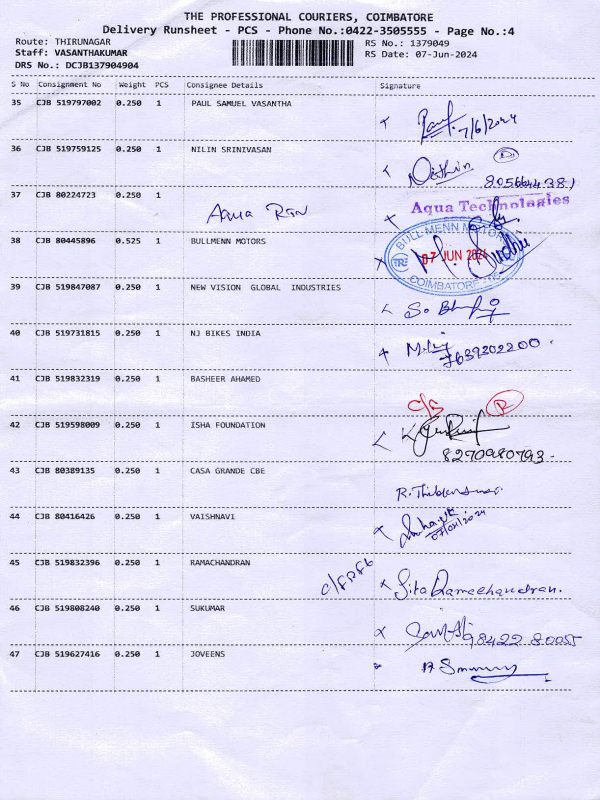 THE PROFESSIONAL COURIERS, COIMBATORE
Delivery Runsheet - PCS - Phone No.:0422-3505555 - Page No.:4
Route: THIRUNAGAR
RS No.: 1379049
Staff: VASANTHAKUMAR
RS Date: 07-Jun-2024
DRS No.: DCJB137904904
S No Consignment No Weight PCS Consignee Details Signature
35 CJB 519797002 0.250 1 PAUL SAMUEL VASANTHA
7/6/2024
36 CJB 519759125 0.250 1 NILIN SRINIVASAN
Nithin
37 CJB 80224723 0.250 1
Aqua Technologies
38 CJB 80445896 0.525 1 BULLMENN MOTORS
BULL MENN MOTORS
07 JUN 2024
COIMBATORE
39 CJB 519847087 0.250 1 NEW VISION GLOBAL INDUSTRIES
40 CJB 519731815 0.250 1 NJ BIKES INDIA
7639202200
41 CJB 519832319 0.250 1 BASHEER AHAMED
C/S R
42 CJB 519598009 0.250 1 ISHA FOUNDATION
8270980793
43 CJB 80389135 0.250 1 CASA GRANDE CBE
44 CJB 80416426 0.250 1 VAISHNAVI
45 CJB 519832396 0.250 1 RAMACHANDRAN
Sita Ramachandran.
46 CJB 519808240 0.250 1 SUKUMAR
98422 80055
47 CJB 519627416 0.250 1 JOVEENS